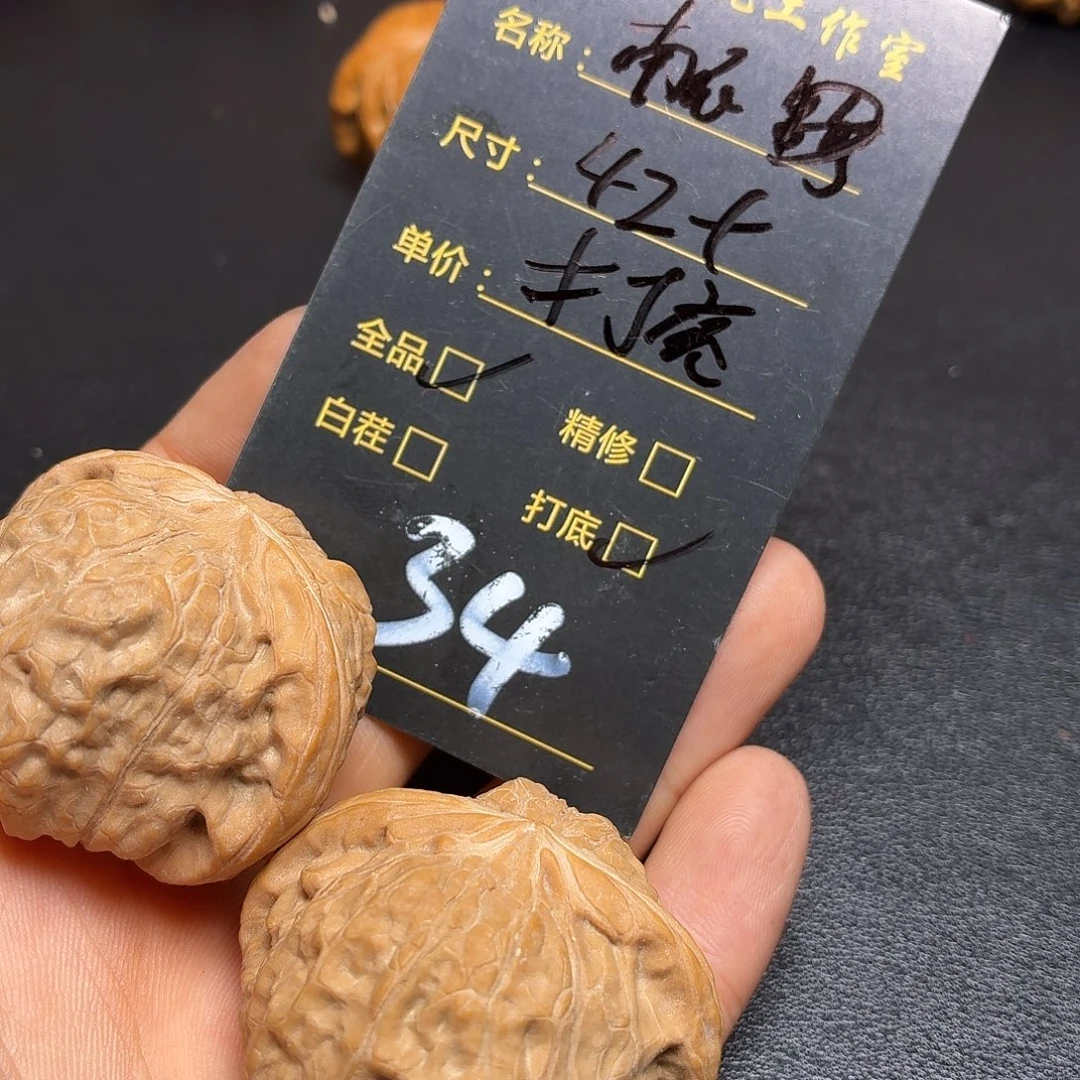 工作室
名称：南疆
尺寸：42+
单价：手打底
全品 ✓
精修
白茬
打底 ✓
34